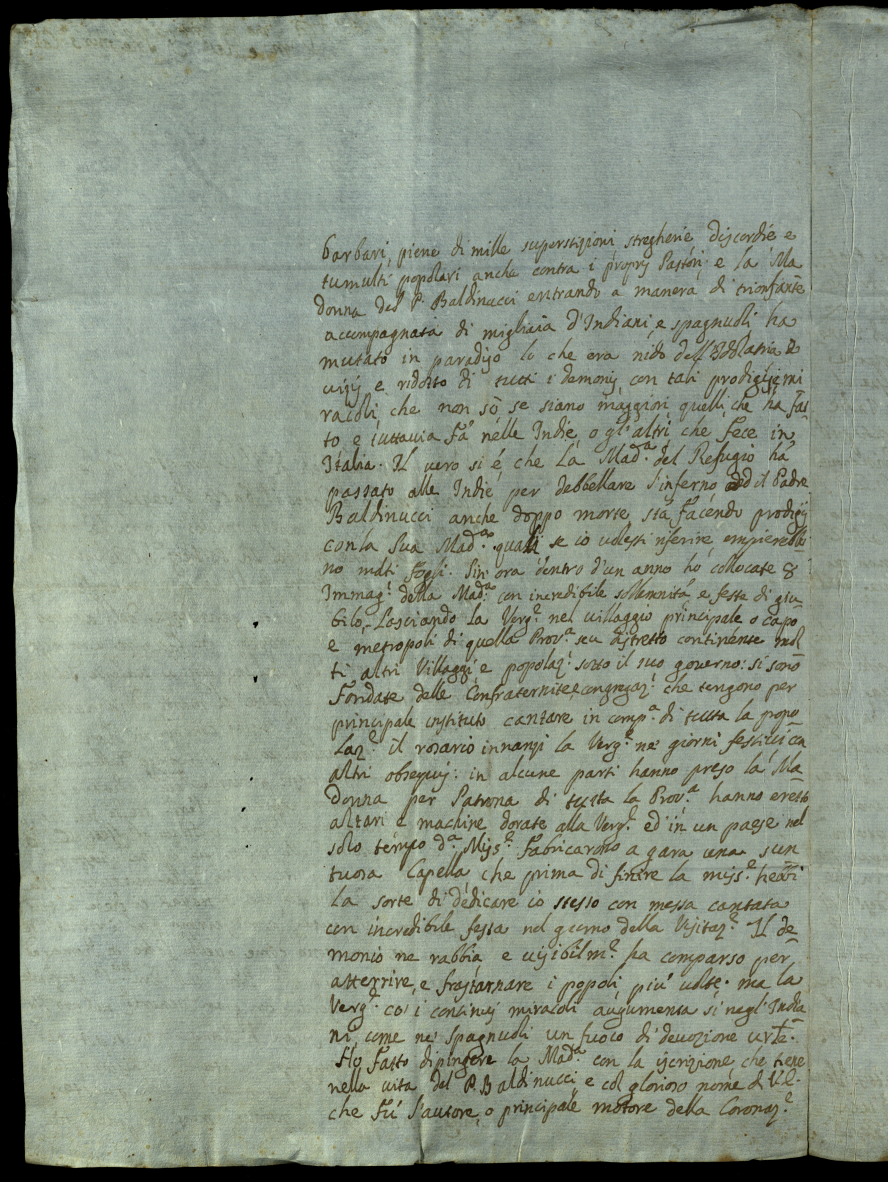 barbari, piene di mille superstizioni stregherie discordie e
tumulti popolari anche contra i proprij Pastori e la Ma
donna del P. Baldinucci entrando a manera di trionfante
accompagnata di migliaia d'Indiani, e spagnuoli ha
mutato in paradiso lo che era nido dell'Idolatria e
vizij e ridotto di tutti i demonij con tali prodigij e mi
racoli, che non sò se siano maggiori quelli, che ha fat
to e tuttavia fa nelle Indie, o gl'altri che fece in
Italia. Il vero si è che La Mad.ª del Refugio ha
passato alle Indie per debbellare l'inferno ed il Padre
Baldinucci anche doppo morte stà facendo prodigij
con la Sua Mad.ª quali se io volessi riferire empierebbo
no molti fogli. Sin ora dentro d'un anno ho collocate 8
Immag.ⁱ della Mad.ª con incredibile sollennità e festa di giu
bilo, Lasciando la Verg.ᵉ nel villaggio principale o capo
e metropoli di quella Prov.ª seu distretto continente mol
ti altri Villaggi, e popolaz.ⁱ sotto il suo governo: si sono
Fondate delle Confraternite e congregaz.ⁱ che tengono per
principale instituto cantare in comp.ª di tutta la popo
laz.ᵉ il rosario innanzi la Verg.ᵉ ne' giorni festivi con
altri obsequij: in alcune parti hanno preso la Ma
donna per Patrona di tutta la Prov.ª hanno eretto
altari e machine dorate alla Verg.ᵉ ed in un paese nel
solo tempo d.ª Miss.ᵉ Fabricarono a gara una sun
tuosa Capella che prima di finire la miss.ᵉ hebbi
La sorte di dedicare io stesso con messa cantata
con incredibile festa nel giorno della Visitaz.ᵉ Il de
monio ne rabbia e visibilm.ᵉ ha comparso per
atterrire, e frastornare i popoli più volte. ma la
Verg.ᵉ co' i continuj miracoli augumenta sì negl'India
ni, come ne' Spagnuoli un fuoco di devozione
Ho fatto dipingere la Mad.ª con la iscrizione, che tiene
nella vita del P. Baldinucci, e col glorioso nome di V.E.
che fù l'autore, o principale motore della Coronaz.ᵉ